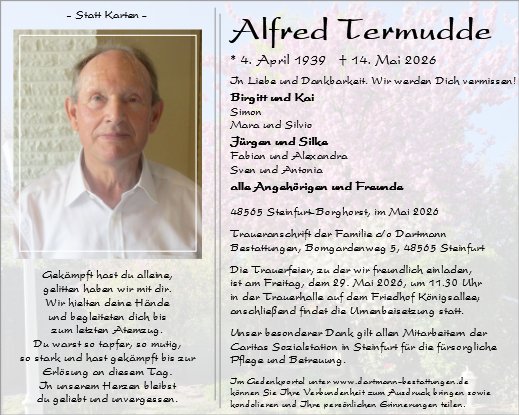 - Statt Karten -
Gekämpft hast du alleine,
gelitten haben wir mit dir.
Wir hielten deine Hände
und begleiteten dich bis
zum letzten Atemzug.
Du warst so tapfer, so mutig,
so stark und hast gekämpft bis zur
Erlösung an diesem Tag.
In unserem Herzen bleibst
du geliebt und unvergessen.
Alfred Termudde
* 4. April 1939 † 14. Mai 2026
In Liebe und Dankbarkeit. Wir werden Dich vermissen!
Birgitt und Kai
Simon
Mara und Silvio
Jürgen und Silke
Fabian und Alexandra
Sven und Antonia
alle Angehörigen und Freunde
48565 Steinfurt-Borghorst, im Mai 2026
Traueranschrift der Familie c/o Dartmann
Bestattungen, Bomgardenweg 5, 48565 Steinfurt
Die Trauerfeier, zu der wir freundlich einladen,
ist am Freitag, dem 29. Mai 2026, um 11.30 Uhr
in der Trauerhalle auf dem Friedhof Königsallee;
anschließend findet die Urnenbeisetzung statt.
Unser besonderer Dank gilt allen Mitarbeitern der
Caritas Sozialstation in Steinfurt für die fürsorgliche
Pflege und Betreuung.
Im Gedenkportal unter www.dartmann-bestattungen.de
können Sie Ihre Verbundenheit zum Ausdruck bringen sowie
kondolieren und Ihre persönlichen Erinnerungen teilen.